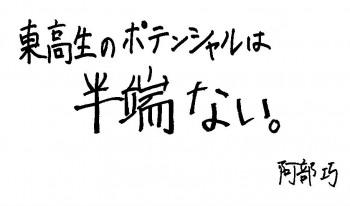 東高生のポテンシャルは
半端ない。
阿部巧